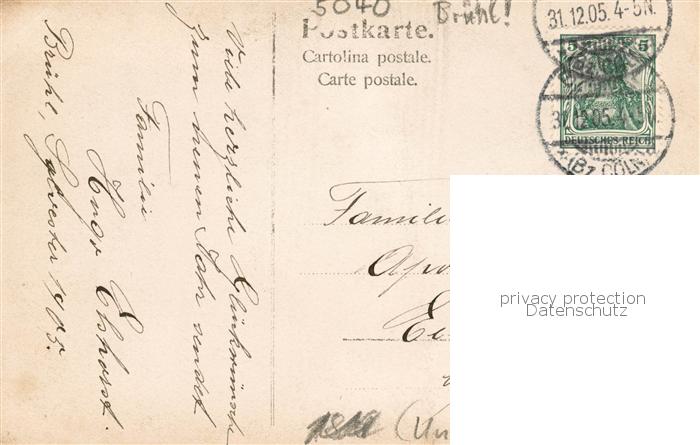 5040 Brühl!
Postkarte.
Cartolina postale.
Carte postale.
31.12.05. 4-5N.
5 5
DEUTSCHES REICH
31.12.05. 4-5N.
(Bz. CÖLN)
Viele herzliche Glückwünsche
zum neuen Jahr sendet
Familie
Hugo
Brühl, Sylvester 1905.
Familie
Apo
privacy protection
Datenschutz
(Un